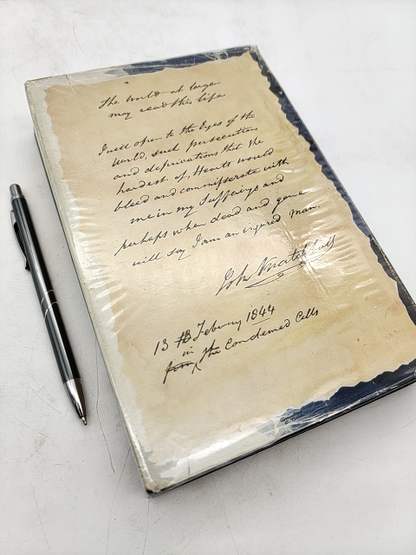 The World at large
may read this life
I will open to the Eyes of the
World, such persecutions
and deprivations that the
hardest of Hearts would
bleed and commisserate with
me in my Sufferings and
perhaps when dead and gone
will say I am an injured Man.
John Knatchbull
13 th February 1844
in
from the Condemed Cells